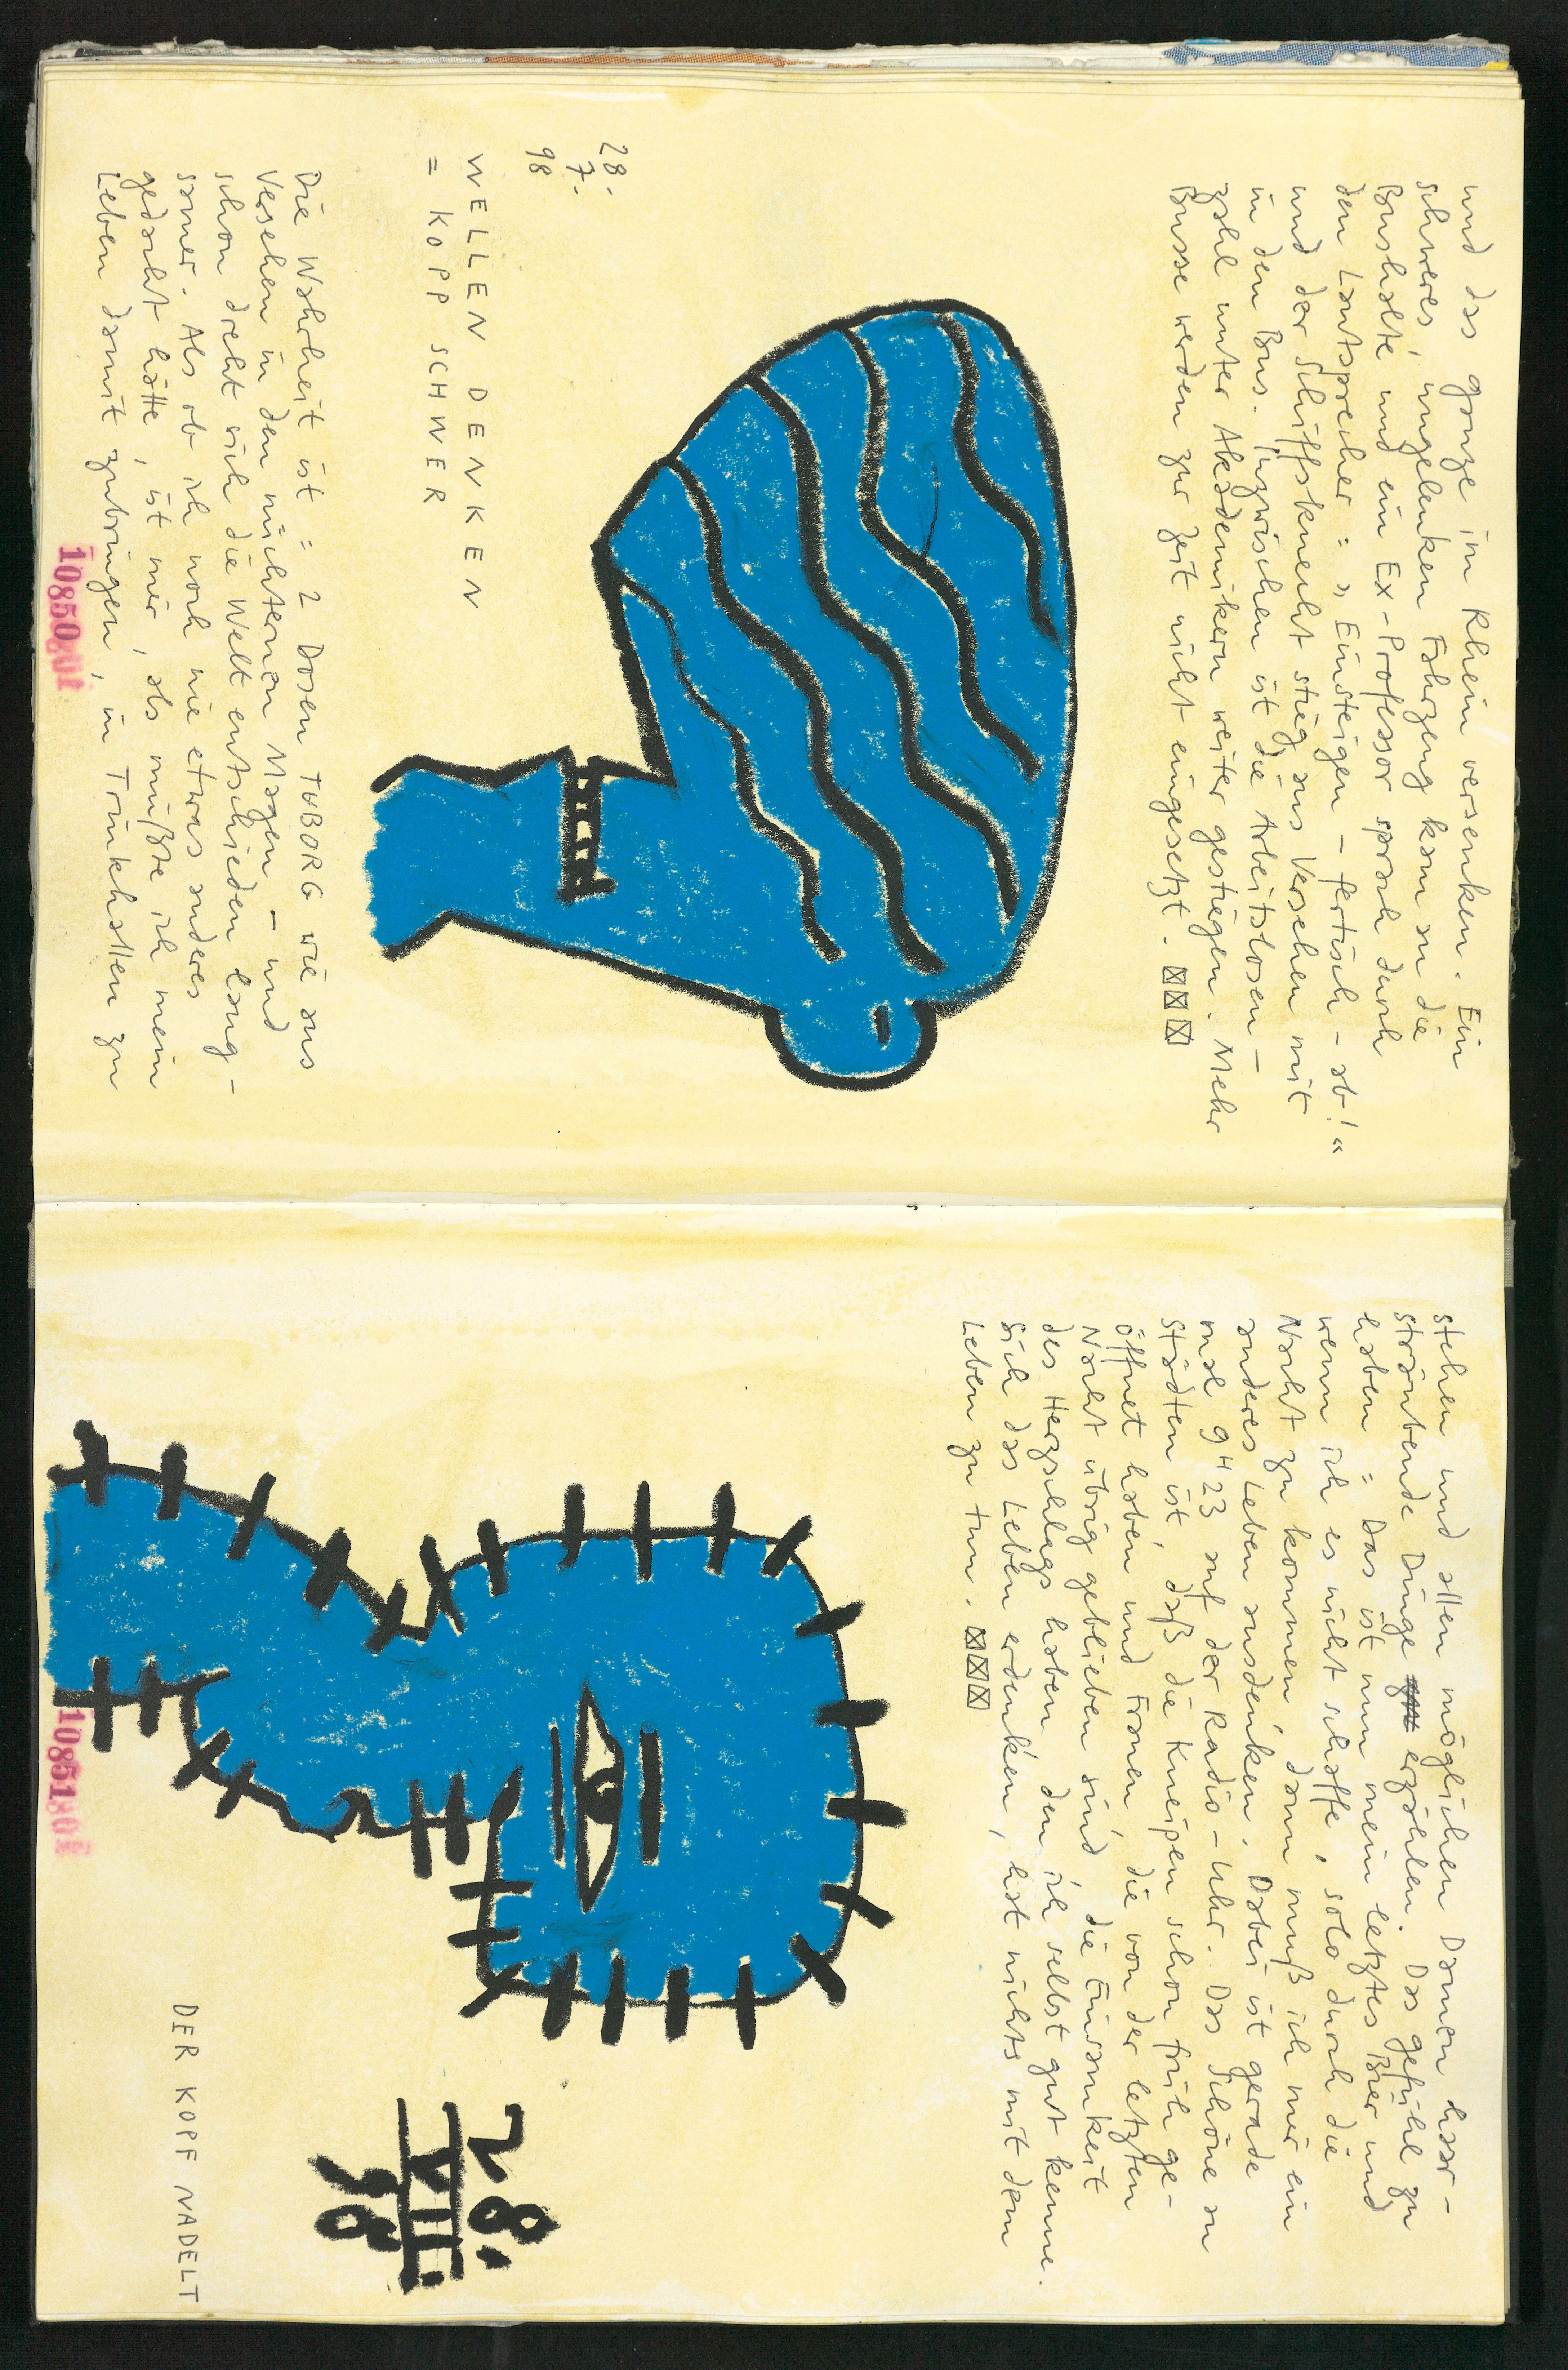 und das ganze im Rhein versenken. Ein
schweres, ungelenken Fahrzeug kam an die
Bushalte und ein Ex-Professor sprach durch
den Lautsprecher = „Einsteigen – fertisch – ab!“
und der Schiffsknecht stieg aus Versehen mit
in den Bus. Inzwischen ist die Arbeitslosen–
zahl unter Akademikern weiter gestiegen. Mehr
Busse werden zur Zeit nicht eingesetzt. ☒☒☒
28.
7.
98
WELLEN DENKEN
= KOPP SCHWER
Die Wahrheit ist = 2 Dosen TUBORG wie aus
Versehen in den nüchternen Magen – und
schon dreht sich die Welt entschieden lang–
samer. Als ob ich noch nie etwas anderes
gedacht hätte, ist mir, als müßte ich mein
Leben damit zubringen, in Trinkhallen zu
10850
stehen und allen möglichen Damen haar–
sträubende Dinge erzählen. Das gefühl zu
haben = Das ist nun mein letztes Bier und
wenn ich es nicht schaffe, solo durch die
Nacht zu kommen, dann muß ich mir ein
anderes Leben ausdenken. Dabei ist gerade
mal 9 H 23 auf der Radio–Uhr. Das Schöne an
Städten ist, daß die Kneipen schon früh ge–
öffnet haben und Frauen, die von der letzten
Nacht übrig geblieben sind, die Einsamkeit
des Herzschlags haben, den ich selbst gut kenne.
Sich das Leben erdenken, hat nichts mit dem
Leben zu tun. ☒☒☒
28.
VII.
98
DER KOPF NADELT
10851